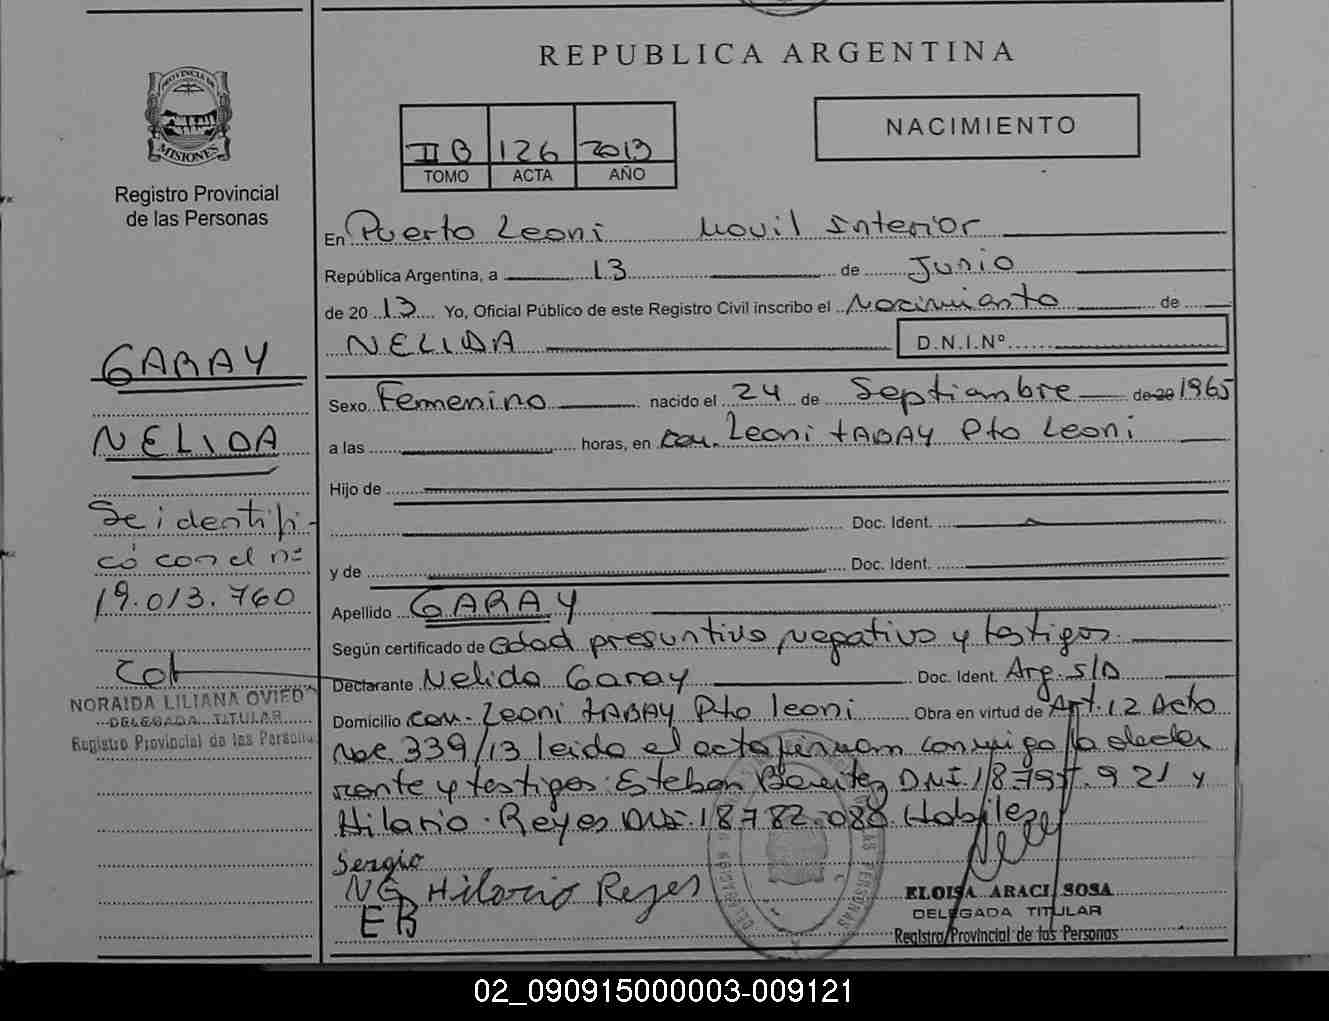 REPUBLICA ARGENTINA
PROVINCIA DE
MISIONES
Registro Provincial
de las Personas
II B 126 2013
TOMO ACTA AÑO
NACIMIENTO
En Puerto Leoni Movil Interior
República Argentina, a 13 de Junio
de 20 13 Yo, Oficial Público de este Registro Civil inscribo el Nacimiento de
NELIDA D.N.I.Nº
Sexo Femenino nacido el 24 de Septiembre de 20 1965
a las horas, en com. Leoni TABAY Pto Leoni
Hijo de
Doc. Ident.
y de Doc. Ident.
Apellido GARAY
Según certificado de edad presuntiva negativo y testigos
Declarante Nelida Garay Doc. Ident. Arg. S/D
Domicilio com. Leoni TABAY Pto leoni Obra en virtud de Art. 12 Acto
339/13 leido el acta firmam conmigo la decla
rante y testigos: Esteban Benitez DNI 18.797.921 y
Hilario Reyes DNI 18782.088 Habiles
Sergio
NG Hilario Reyes
EB
ELOISA ARACI SOSA
DELEGADA TITULAR
Registro Provincial de las Personas
GARAY
NELIDA
Se identifi-
có con el nº
19.013.760
NORAIDA LILIANA OVIEDO
DELEGADA TITULAR
Registro Provincial de las Personas
02_090915000003-009121